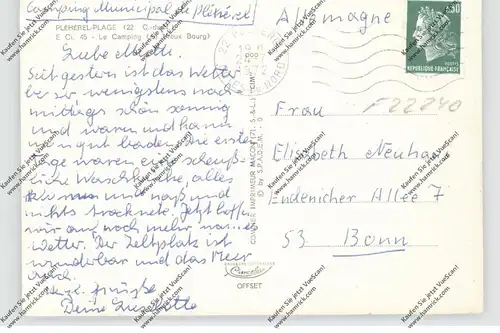 Camping Municipal de Pléhérel
PLEHEREL-PLAGE (22 C.-du-
E Ci. 45 - Le Camping Vieux Bourg)
Allemagne
0,30
REPUBLIQUE FRANÇAISE
F22240
Liebe Mutti,
Seit gestern ist das Wetter
wenigstens nach-
mittags schön sonnig
und warm und kann
man gut baden. Die ersten
Tage waren eine scheuß-
liche Waschküche, alles
naß und
nichts trocknete. Jetzt hoffen
wir auf noch mehr
Wetter. Der Zeltplatz ist
wunderbar und das Meer
auch.
grüßt
Deine
Frau
Elisabeth Neuhaus
Endenicher Allee 7
53 Bonn
COMBIER IMPRIMEUR MACON (71, S.-&-L.)
© by S.P.A.D.E.M.
OFFSET
Kaufen Sie jetzt VueScan!
www.hamrick.com